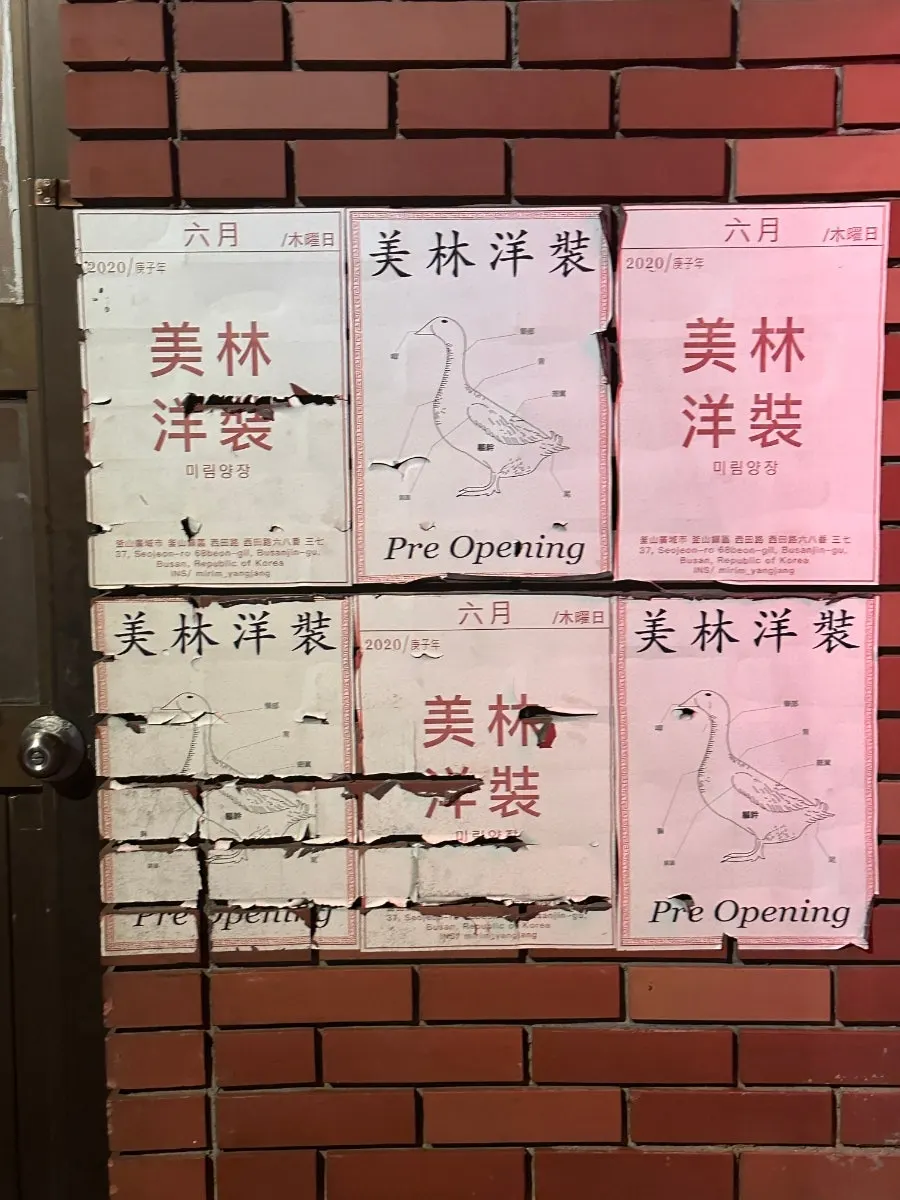 六月 /木曜日
2020/庚子年
美林
洋裝
미림양장
釜山廣域市 釜山鎭區 西田路 西田路六八番 三七
37, Seojeon-ro 68beon-gil, Busanjin-gu,
Busan, Republic of Korea
INS/ mirim_yangjang
美林洋裝
軀幹
尾
Pre Opening
六月 /木曜日
2020/庚子年
美林
洋裝
미림양장
釜山廣域市 釜山鎭區 西田路 西田路六八番 三七
37, Seojeon-ro 68beon-gil, Busanjin-gu,
Busan, Republic of Korea
INS/ mirim_yangjang
美林洋裝
軀幹
Pre Opening
六月 /木曜日
2020/庚子年
美林
洋裝
미림양장
37, Seojeon-ro
Busan, Republic of Korea
INS/ mirim_yangjang
美林洋裝
軀幹
尾
Pre Opening